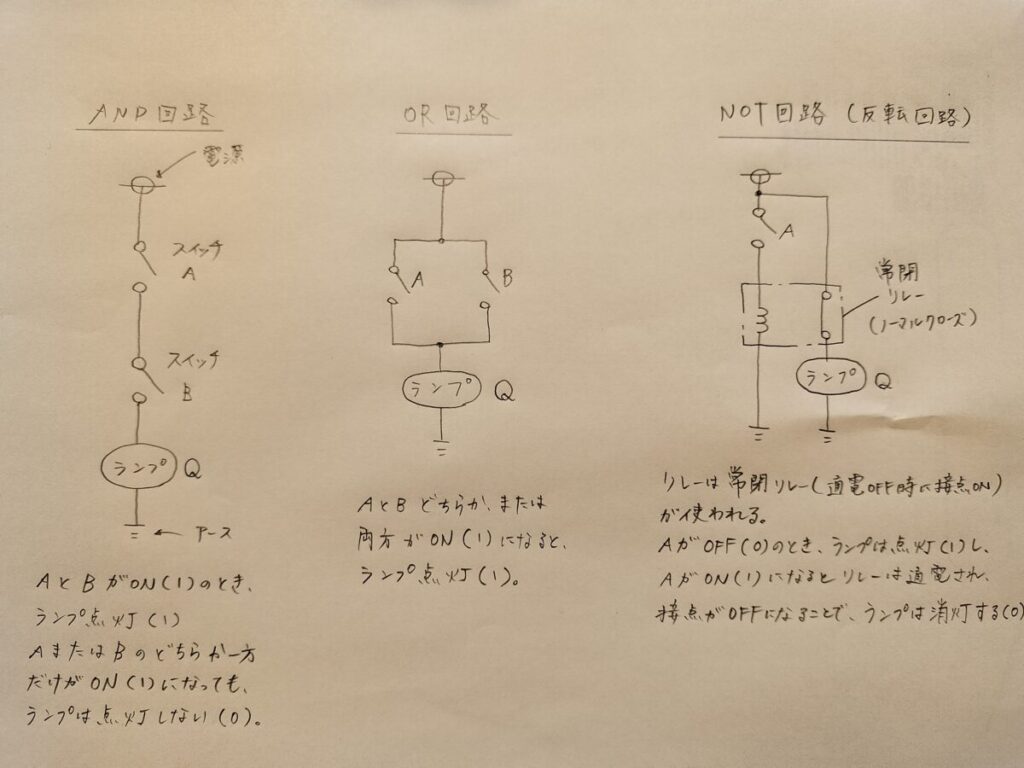 AND回路
電源
スイッチ
A
スイッチ
B
ランプ Q
アース
AとBがON(1)のとき、
ランプ点灯(1)
AまたはBのどちらか一方
だけがON(1)になっても、
ランプは点灯しない(0)。
OR回路
A B
ランプ Q
AとBどちらか、または
両方がON(1)になると、
ランプ点灯(1)。
NOT回路(反転回路)
A
常閉
リレー
(ノーマルクローズ)
ランプ Q
リレーは常閉リレー(通電OFF時に接点ON)
が使われる。
AがOFF(0)のとき、ランプは点灯(1)し、
AがON(1)になるとリレーは通電され、
接点がOFFになることで、ランプは消灯する(0)